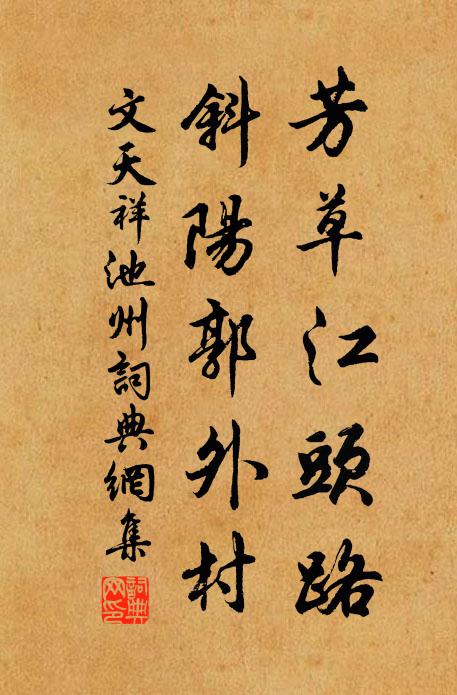 芳草江頭路
斜陽郭外村
文天祥池州詞典網集
詞典网印